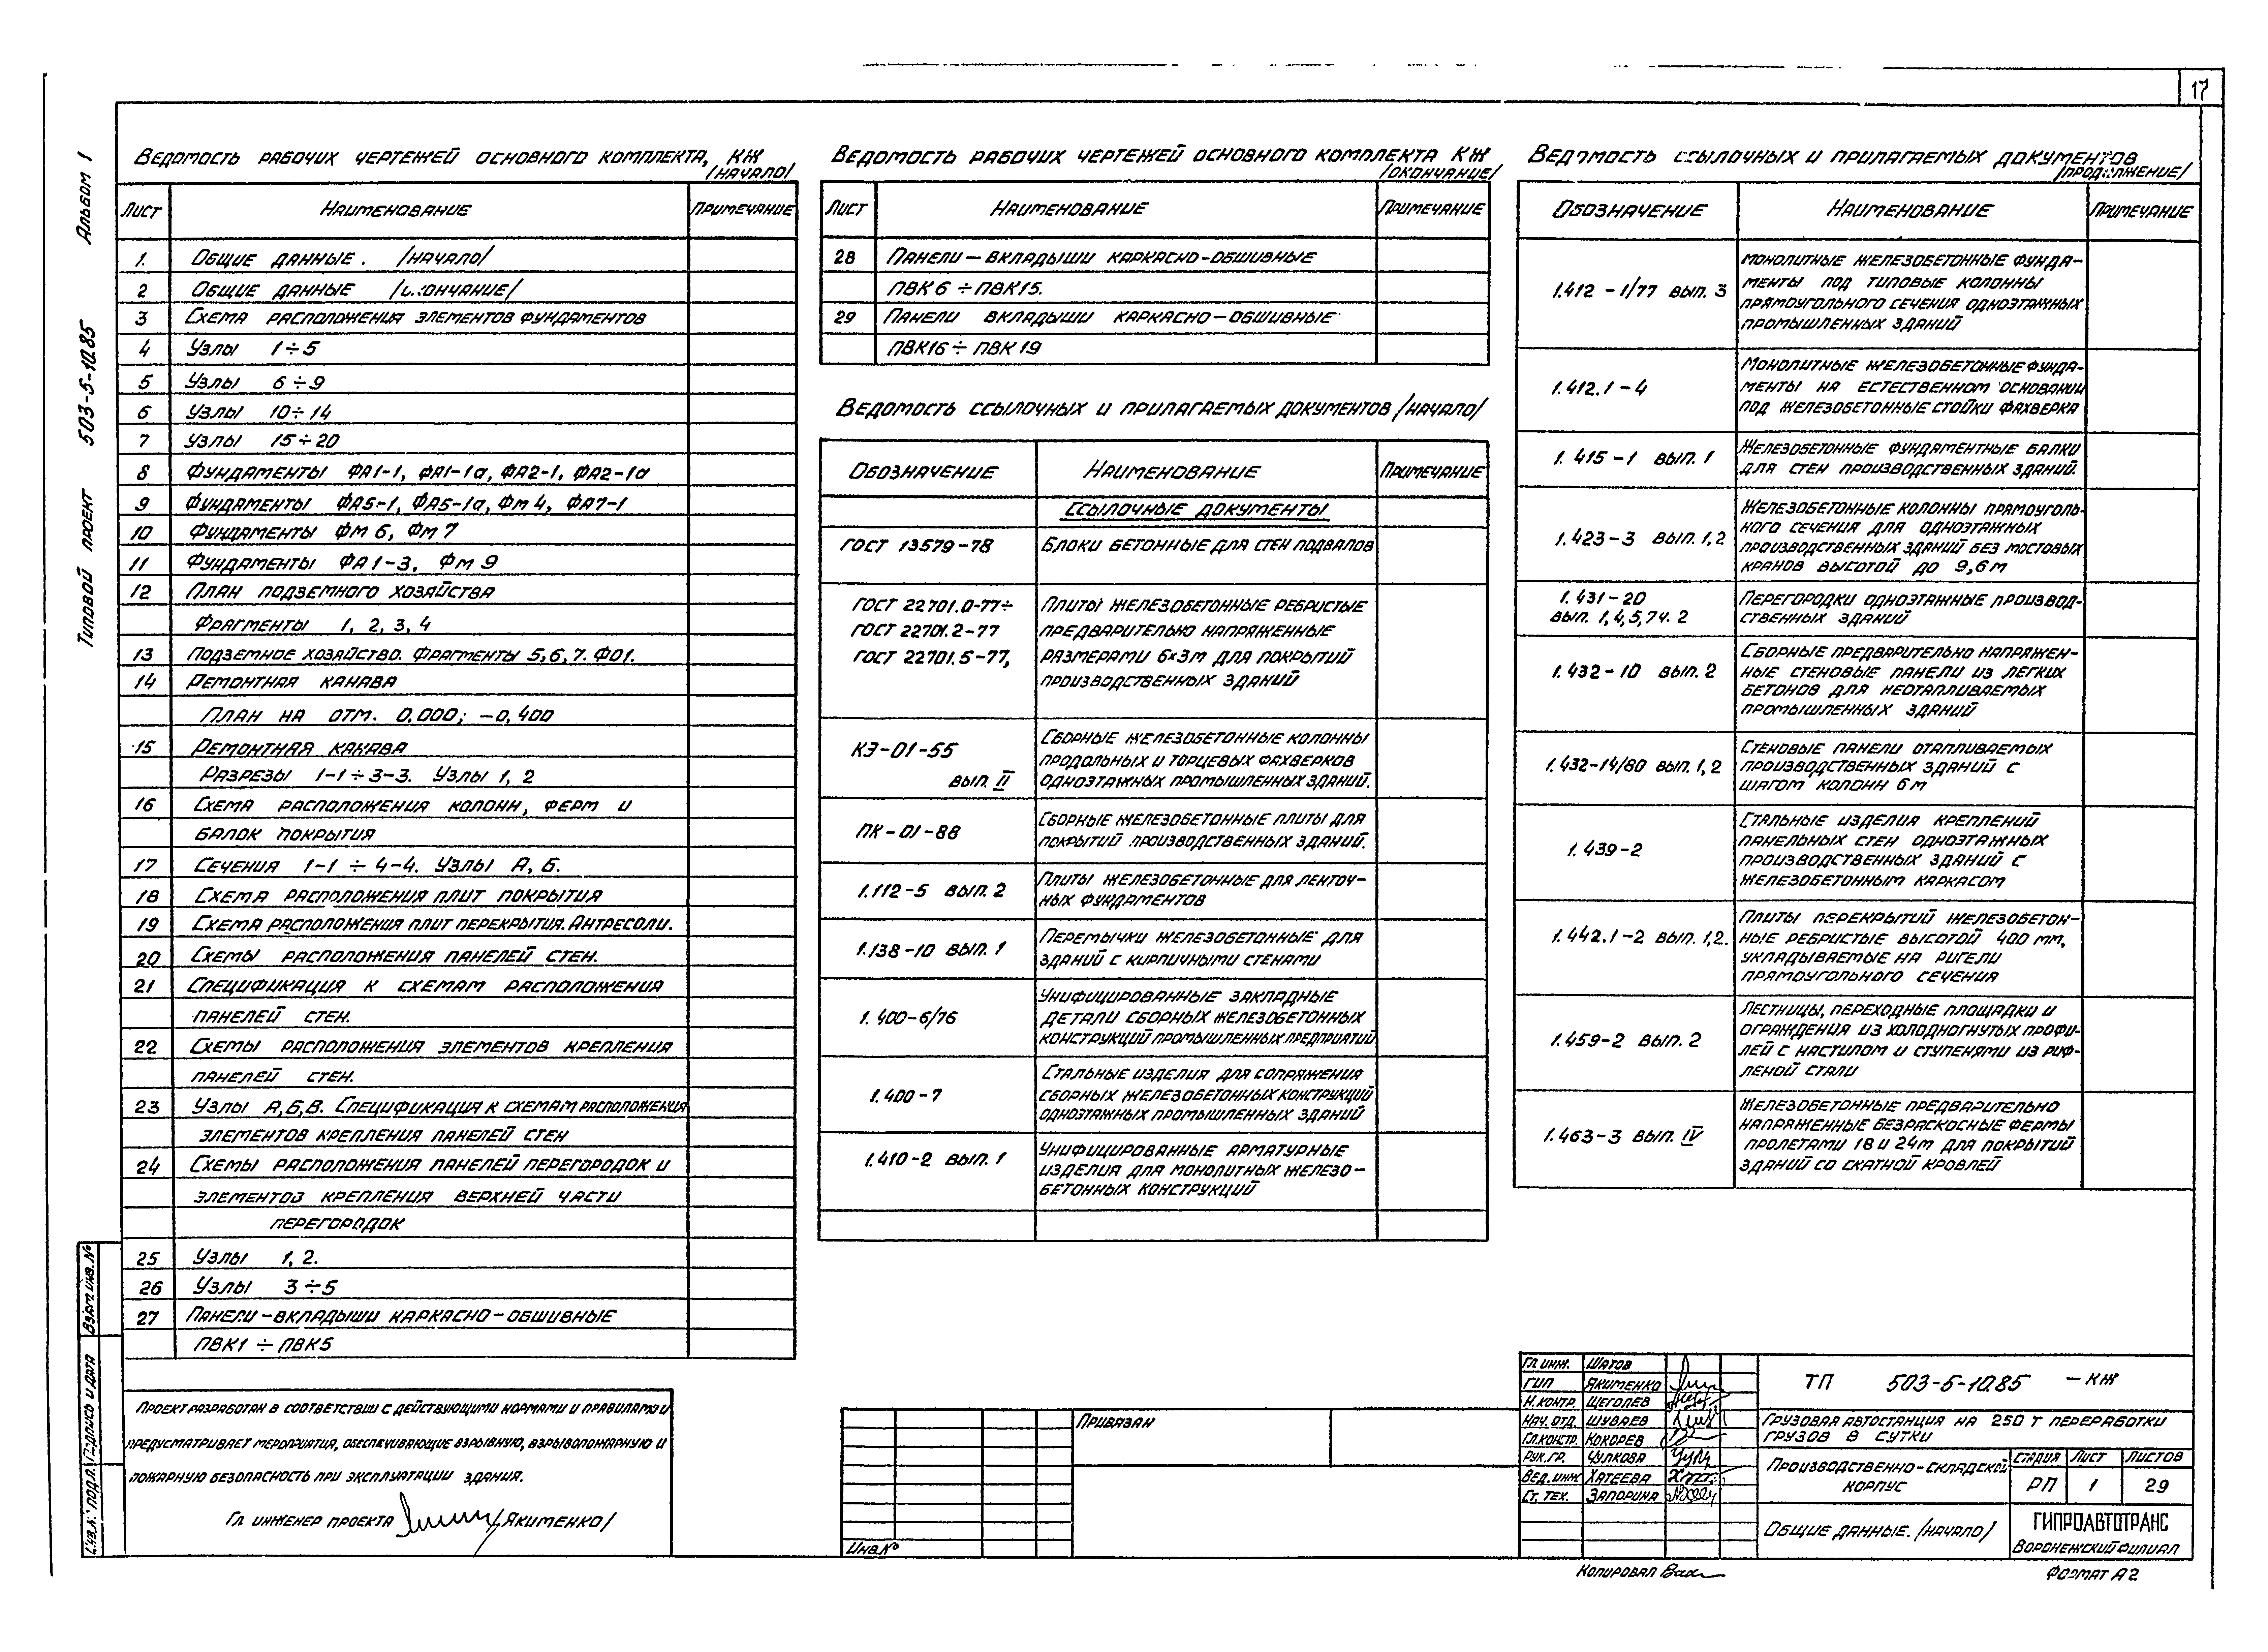 17
Альбом 1
Типовой проект 503-5-10.85
Ведомость рабочих чертежей основного комплекта, КЖ
/начало/
Лист Наименование Примечание
1. Общие данные. /начало/
2 Общие данные /окончание/
3 Схема расположения элементов фундаментов
4 Узлы 1÷5
5 Узлы 6÷9
6 Узлы 10÷14
7 Узлы 15÷20
8 Фундаменты ФА1-1, ФА1-1а, ФА2-1, ФА2-1а
9 Фундаменты ФА5-1, ФА5-1а, Фм 4, ФА7-1
10 Фундаменты Фм 6, Фм 7
11 Фундаменты ФА1-3, Фм 9
12 План подземного хозяйства
Фрагменты 1, 2, 3, 4
13 Подземное хозяйство. Фрагменты 5,6,7. ФО1.
14 Ремонтная канава
План на отм. 0,000; -0,400
15 Ремонтная канава
Разрезы 1-1÷3-3. Узлы 1, 2
16 Схема расположения колонн, ферм и
балок покрытия
17 Сечения 1-1 ÷ 4-4. Узлы А, Б.
18 Схема расположения плит покрытия
19 Схема расположения плит перекрытия. Антресоли.
20 Схемы расположения панелей стен.
21 Спецификация к схемам расположения
панелей стен.
22 Схемы расположения элементов крепления
панелей стен.
23 Узлы А, Б, В. Спецификация к схемам расположения
элементов крепления панелей стен
24 Схемы расположения панелей перегородок и
элементов крепления верхней части
перегородок
25 Узлы 1, 2.
26 Узлы 3÷5
27 Панели-вкладыши каркасно-обшивные
ПВК1 ÷ ПВК5
Проект разработан в соответствии с действующими нормами и правилами и
предусматривает мероприятия, обеспечивающие взрывную, взрывопожарную и
пожарную безопасность при эксплуатации здания.
Гл. инженер проекта /Якименко/
Ведомость рабочих чертежей основного комплекта КЖ
/окончание/
Лист Наименование Примечание
28 Панели-вкладыши каркасно-обшивные
ПВК6 ÷ ПВК15.
29 Панели вкладыши каркасно-обшивные
ПВК16 ÷ ПВК 19
Ведомость ссылочных и прилагаемых документов /начало/
Обозначение Наименование Примечание
Ссылочные документы
ГОСТ 13579-78 Блоки бетонные для стен подвалов
ГОСТ 22701.0-77÷ Плиты железобетонные ребристые
ГОСТ 22701.2-77 предварительно напряженные
ГОСТ 22701.5-77, размерами 6×3м для покрытий
производственных зданий
КЭ-01-55 Сборные железобетонные колонны
продольных и торцевых фахверков
вып. II одноэтажных промышленных зданий.
ПК-01-88 Сборные железобетонные плиты для
покрытий производственных зданий.
1.112-5 вып. 2 Плиты железобетонные для ленточ-
ных фундаментов
1.138-10 вып. 1 Перемычки железобетонные для
зданий с кирпичными стенами
1.400-6/76 Унифицированные закладные
детали сборных железобетонных
конструкций промышленных предприятий
1.400-7 Стальные изделия для сопряжения
сборных железобетонных конструкций
одноэтажных промышленных зданий
1.410-2 вып. 1 Унифицированные арматурные
изделия для монолитных железо-
бетонных конструкций
Ведомость ссылочных и прилагаемых документов
/продолжение/
Обозначение Наименование Примечание
1.412-1/77 вып. 3 монолитные железобетонные фунда-
менты под типовые колонны
прямоугольного сечения одноэтажных
промышленных зданий
1.412.1-4 Монолитные железобетонные фунда-
менты на естественном основании
под железобетонные стойки фахверка
1.415-1 вып. 1 Железобетонные фундаментные балки
для стен производственных зданий.
1.423-3 вып. 1,2 Железобетонные колонны прямоуголь-
ного сечения для одноэтажных
производственных зданий без мостовых
кранов высотой до 9,6м
1.431-20 Перегородки одноэтажные производ-
вып. 1,4,5,7ч.2 ственных зданий
1.432-10 вып. 2 Сборные предварительно напряжен-
ные стеновые панели из легких
бетонов для неотапливаемых
промышленных зданий
1.432-14/80 вып. 1,2 Стеновые панели отапливаемых
производственных зданий с
шагом колонн 6м
1.439-2 Стальные изделия креплений
панельных стен одноэтажных
производственных зданий с
железобетонным каркасом
1.442.1-2 вып. 1,2. Плиты перекрытий железобетон-
ные ребристые высотой 400 мм,
укладываемые на ригели
прямоугольного сечения
1.459-2 вып. 2 Лестницы, переходные площадки и
ограждения из холодногнутых профи-
лей с настилом и ступенями из риф-
леной стали
1.463-3 вып. IV Железобетонные предварительно
напряженные безраскосные фермы
пролетами 18 и 24м для покрытий
зданий со скатной кровлей
Привязан
Инв.№
Гл. инж. Шатов
ГИП Якименко
Н.контр. Щеголев
Нач. отд. Шуваев
Гл.констр. Кокорев
Рук. гр. Чулкова
Вед. инж. Хатеева
Ст. тех. Запорина
ТП 503-5-10.85 -КЖ
Грузовая автостанция на 250 т переработки
грузов в сутки
Производственно-складской
корпус
Стадия Лист Листов
РП 1 29
Общие данные. /начало/
ГИПРОАВТОТРАНС
Воронежский филиал
Копировал
Формат А2
Взам. инв. №
Подпись и дата
Инв. № подл.